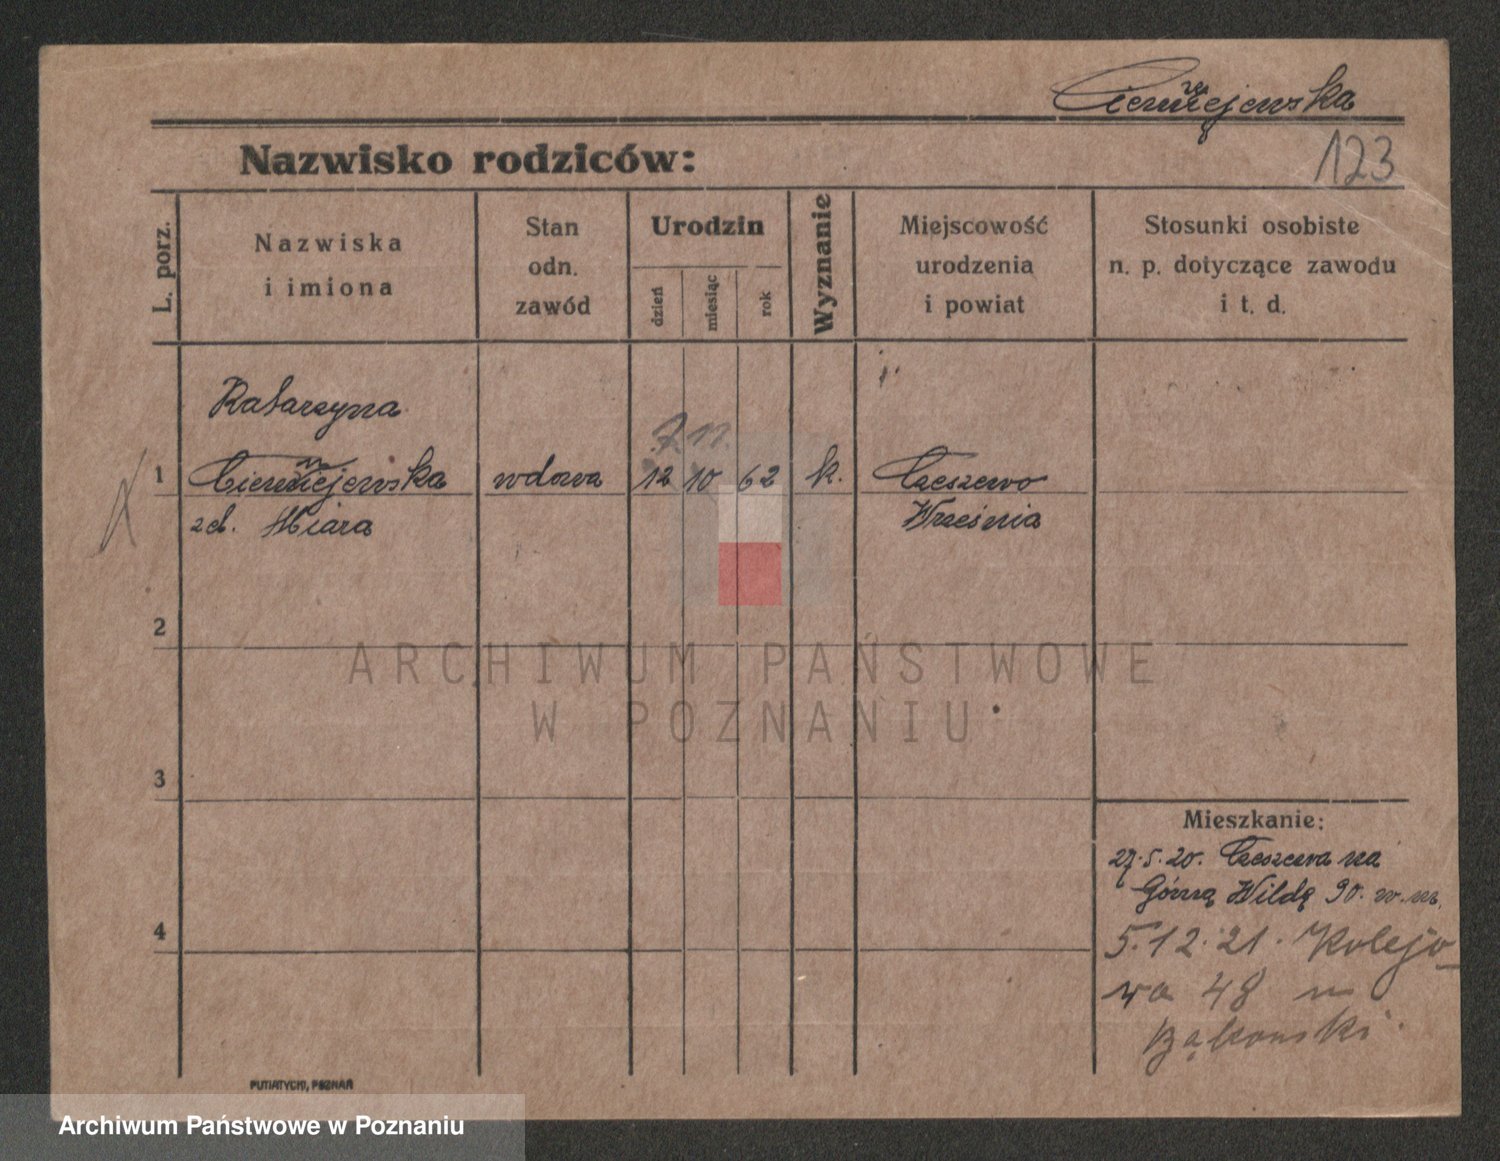 Cierniejewska
123
Nazwisko rodziców:
L. porz.
Nazwiska
i imiona
Stan
odn.
zawód
Urodzin
dzień
miesiąc
rok
Wyznanie
Miejscowość
urodzenia
i powiat
Stosunki osobiste
n. p. dotyczące zawodu
i t. d.
Katarzyna
7 11.
1 Cierniejewska wdowa 12 10 62 k. Czeszewo
zd. Miara Września
2
ARCHIWUM PAŃSTWOWE
W POZNANIU
3
Mieszkanie:
27.5.20. Czeszewa na
Górną Wildę 90. w.m.
4
5.12.21. Kolejo-
wa 48 n
Bąkowski
PUTIATYCKI, POZNAŃ
Archiwum Państwowe w Poznaniu